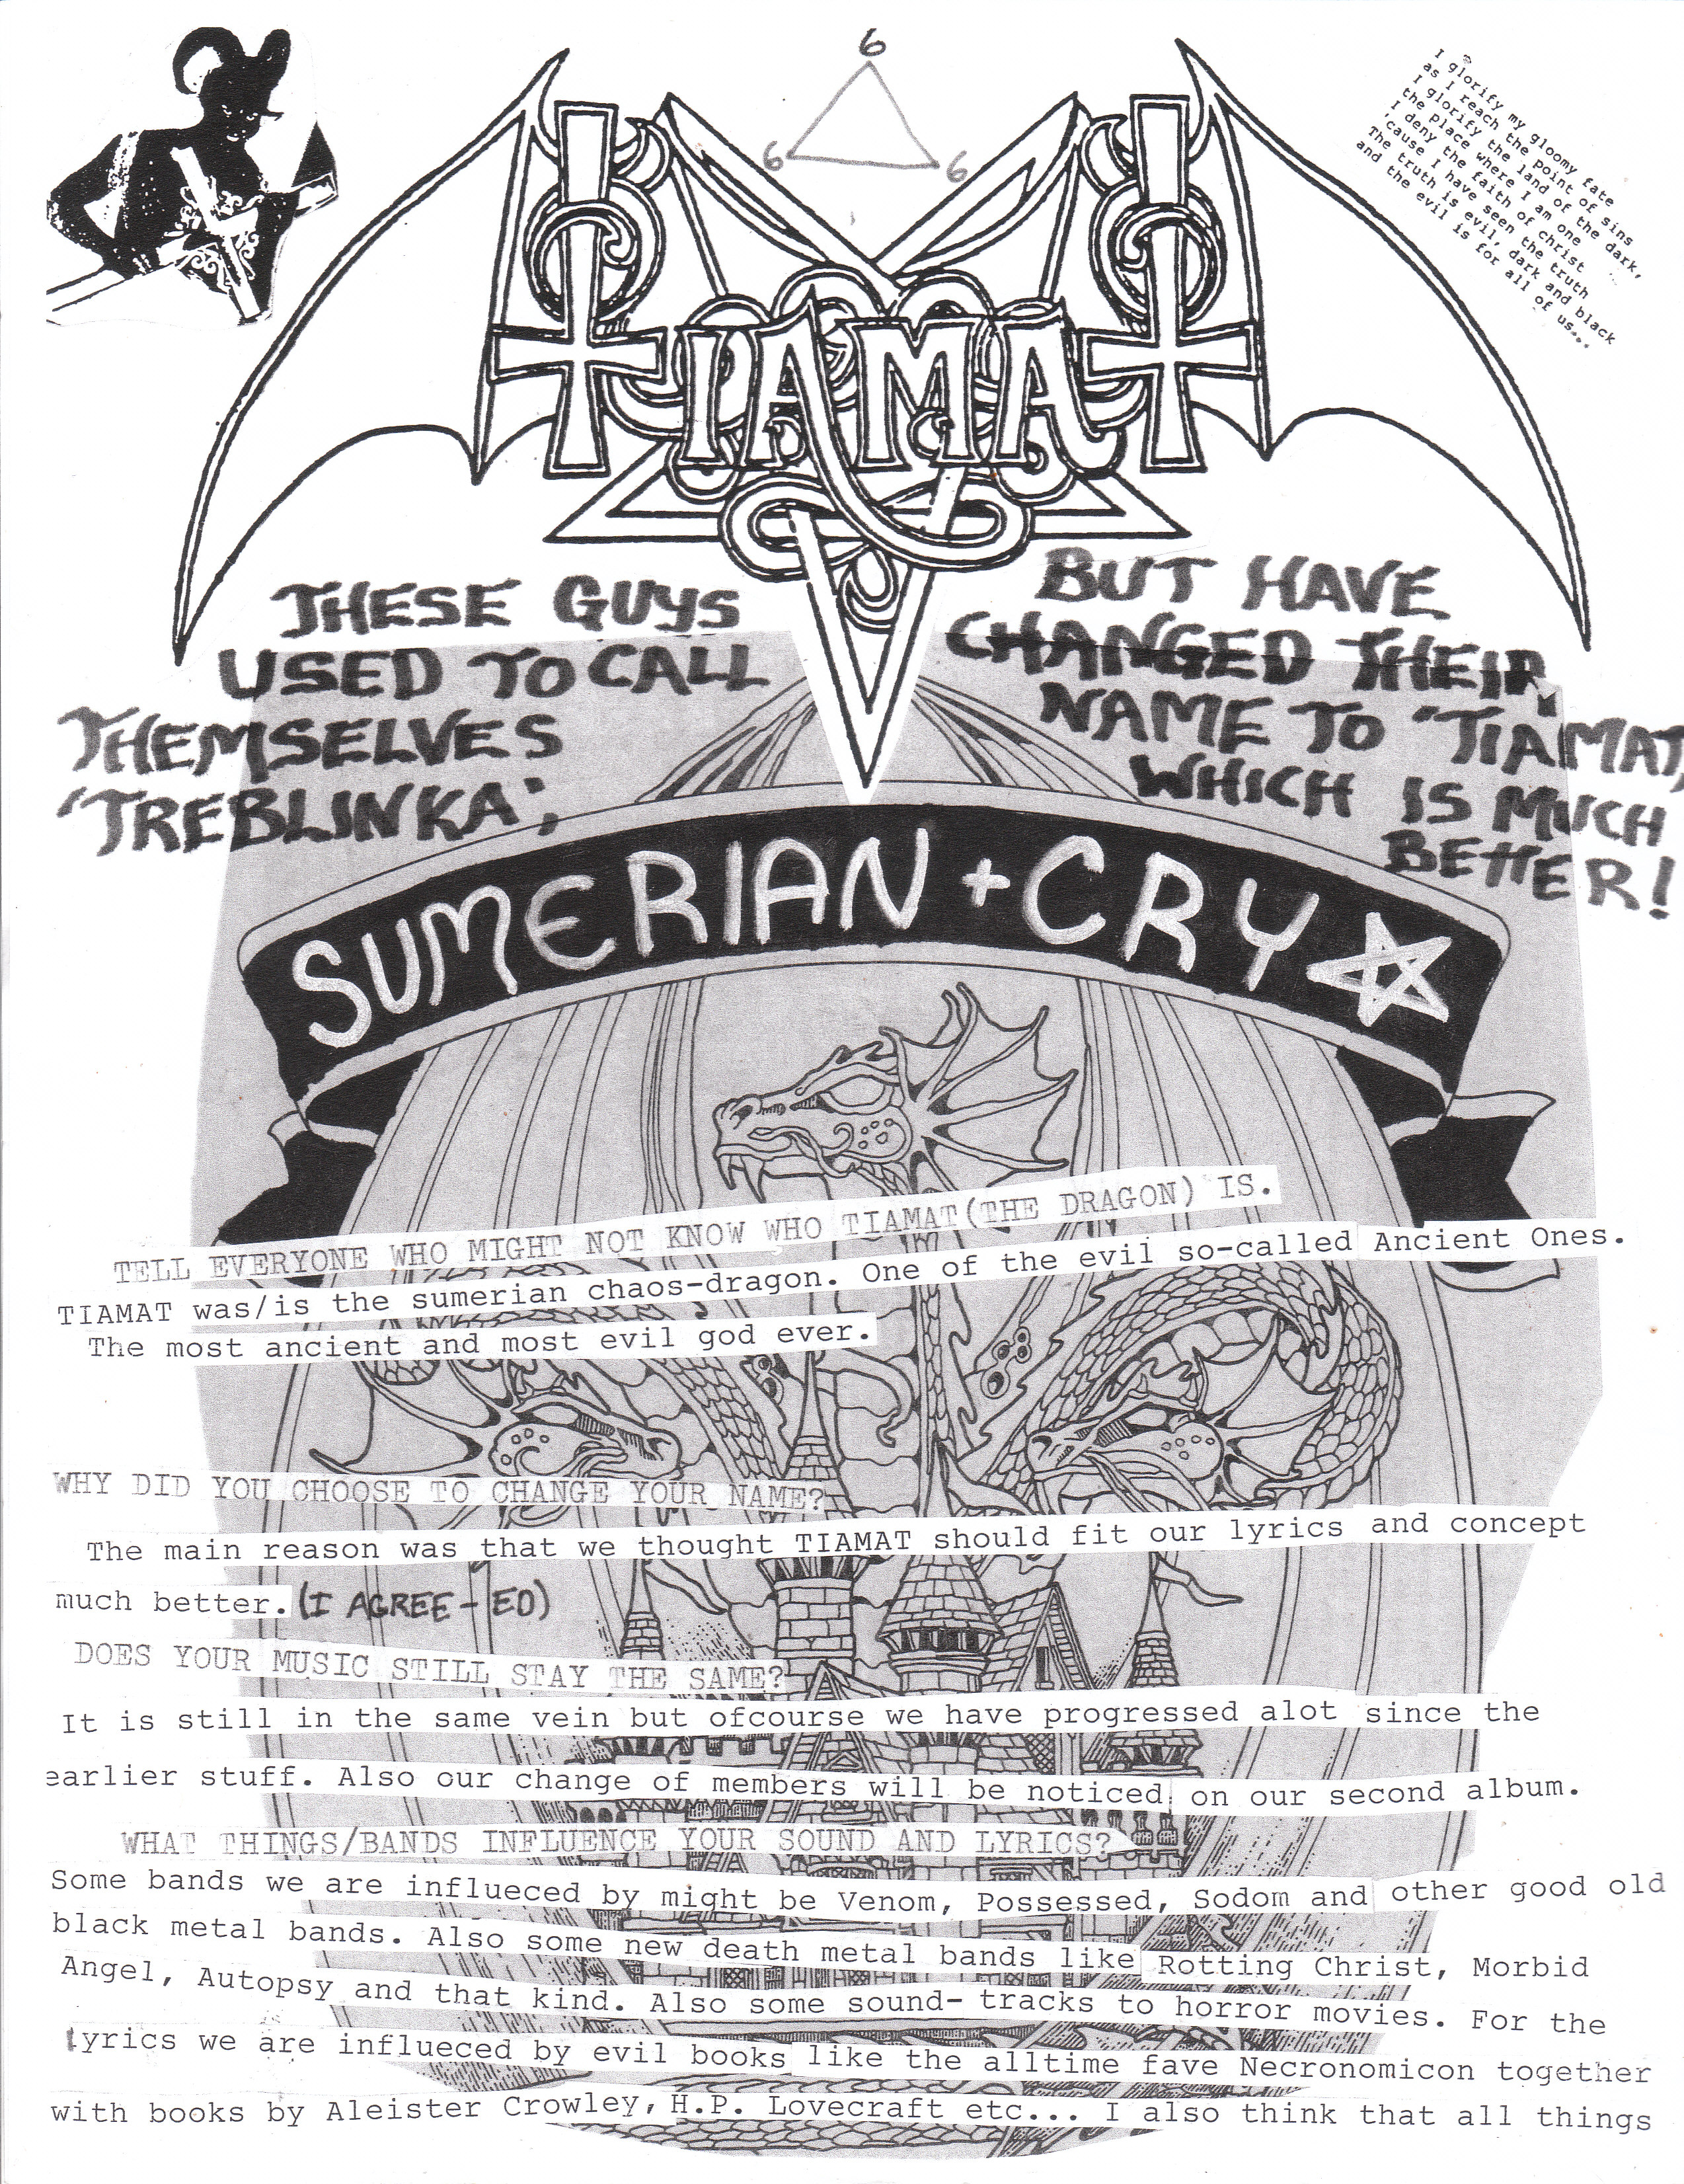 6
6 6
I glorify my gloomy fate
as I reach the point of sins
I glorify the land of the dark,
the place where I am one
I deny the faith of christ
'cause I have seen the truth
The truth is evil, dark and black
and the evil is for all of us...
TIAMAT
THESE GUYS
USED TO CALL
THEMSELVES
'TREBLINKA',
BUT HAVE
CHANGED THEIR
NAME TO 'TIAMAT,
WHICH IS MUCH
BETTER!
SUMERIAN + CRY
TELL EVERYONE WHO MIGHT NOT KNOW WHO TIAMAT(THE DRAGON) IS.
TIAMAT was/is the sumerian chaos-dragon. One of the evil so-called Ancient Ones.
The most ancient and most evil god ever.
WHY DID YOU CHOOSE TO CHANGE YOUR NAME?
The main reason was that we thought TIAMAT should fit our lyrics and concept
much better. (I AGREE-ED)
DOES YOUR MUSIC STILL STAY THE SAME?
It is still in the same vein but ofcourse we have progressed alot since the
earlier stuff. Also our change of members will be noticed on our second album.
WHAT THINGS/BANDS INFLUENCE YOUR SOUND AND LYRICS?
Some bands we are influeced by might be Venom, Possessed, Sodom and other good old
black metal bands. Also some new death metal bands like Rotting Christ, Morbid
Angel, Autopsy and that kind. Also some sound-tracks to horror movies. For the
lyrics we are influeced by evil books like the alltime fave Necronomicon together
with books by Aleister Crowley, H.P. Lovecraft etc... I also think that all things